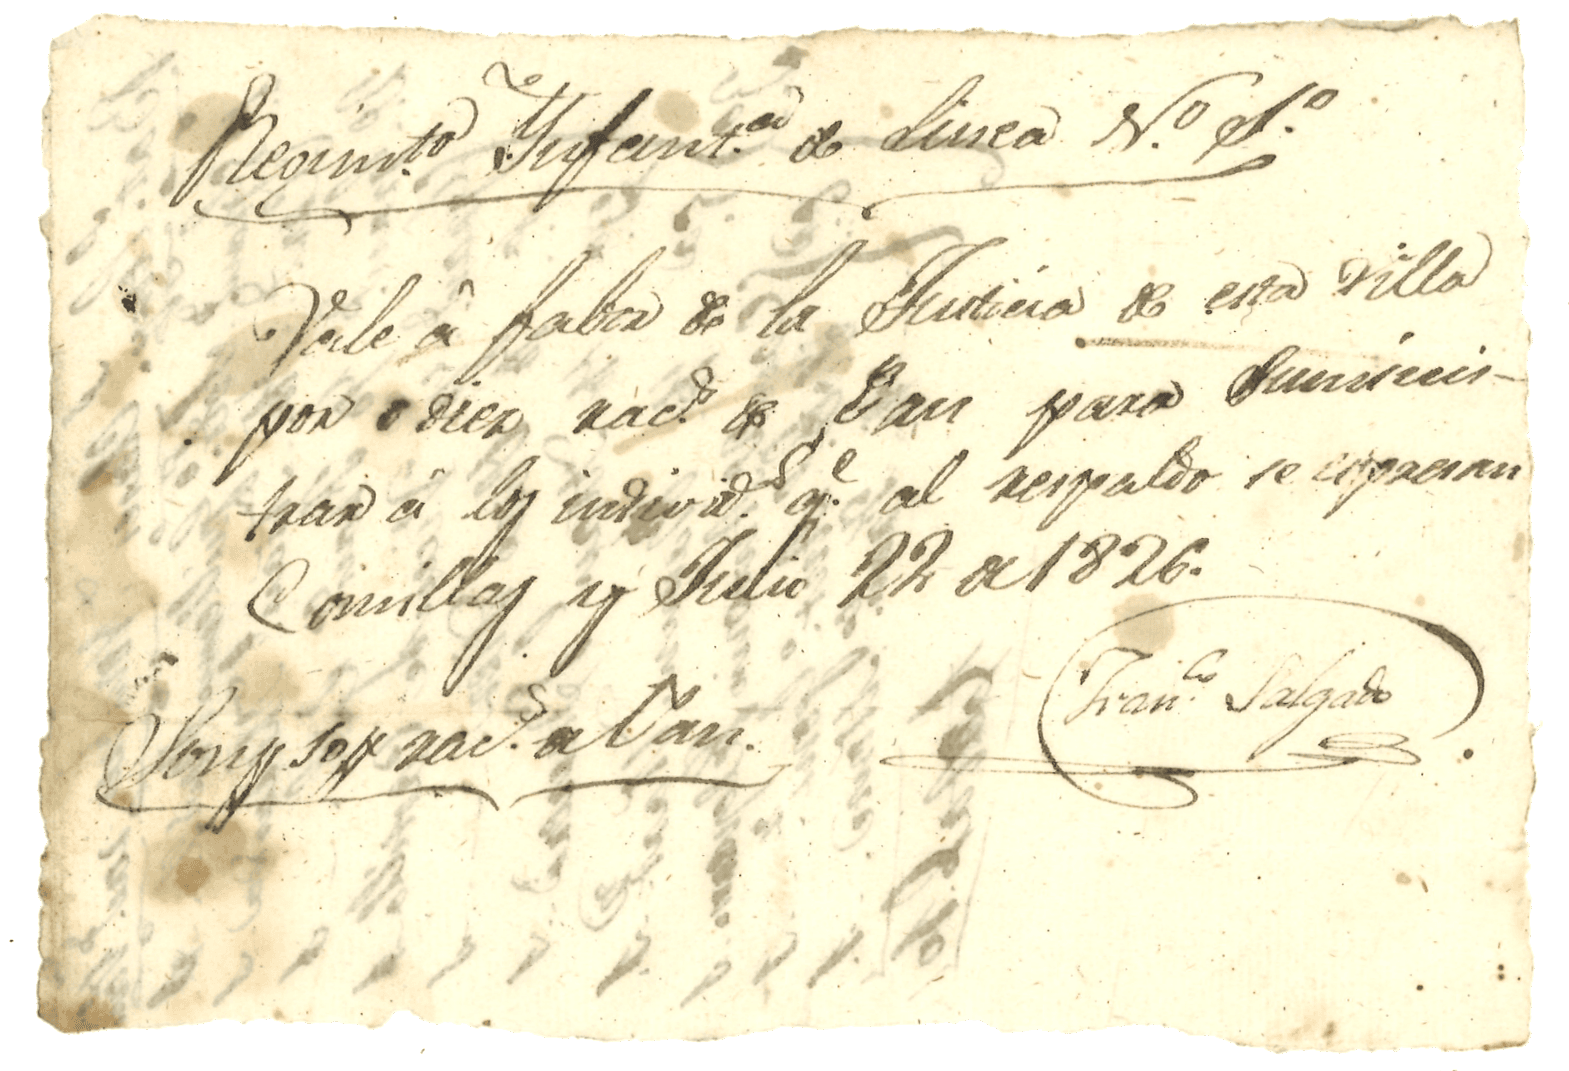 Regim.to Infant.ea de Linea N.o 1.o
Vale â fabor de la Justicia de esta villa
por diez rac.s de Pan para suminis-
trar â los individ.s q.e al respaldo se expresan
Comillas y Julio 22 de 1826.
Fran.co Salgado
Son rac.s de Pan.